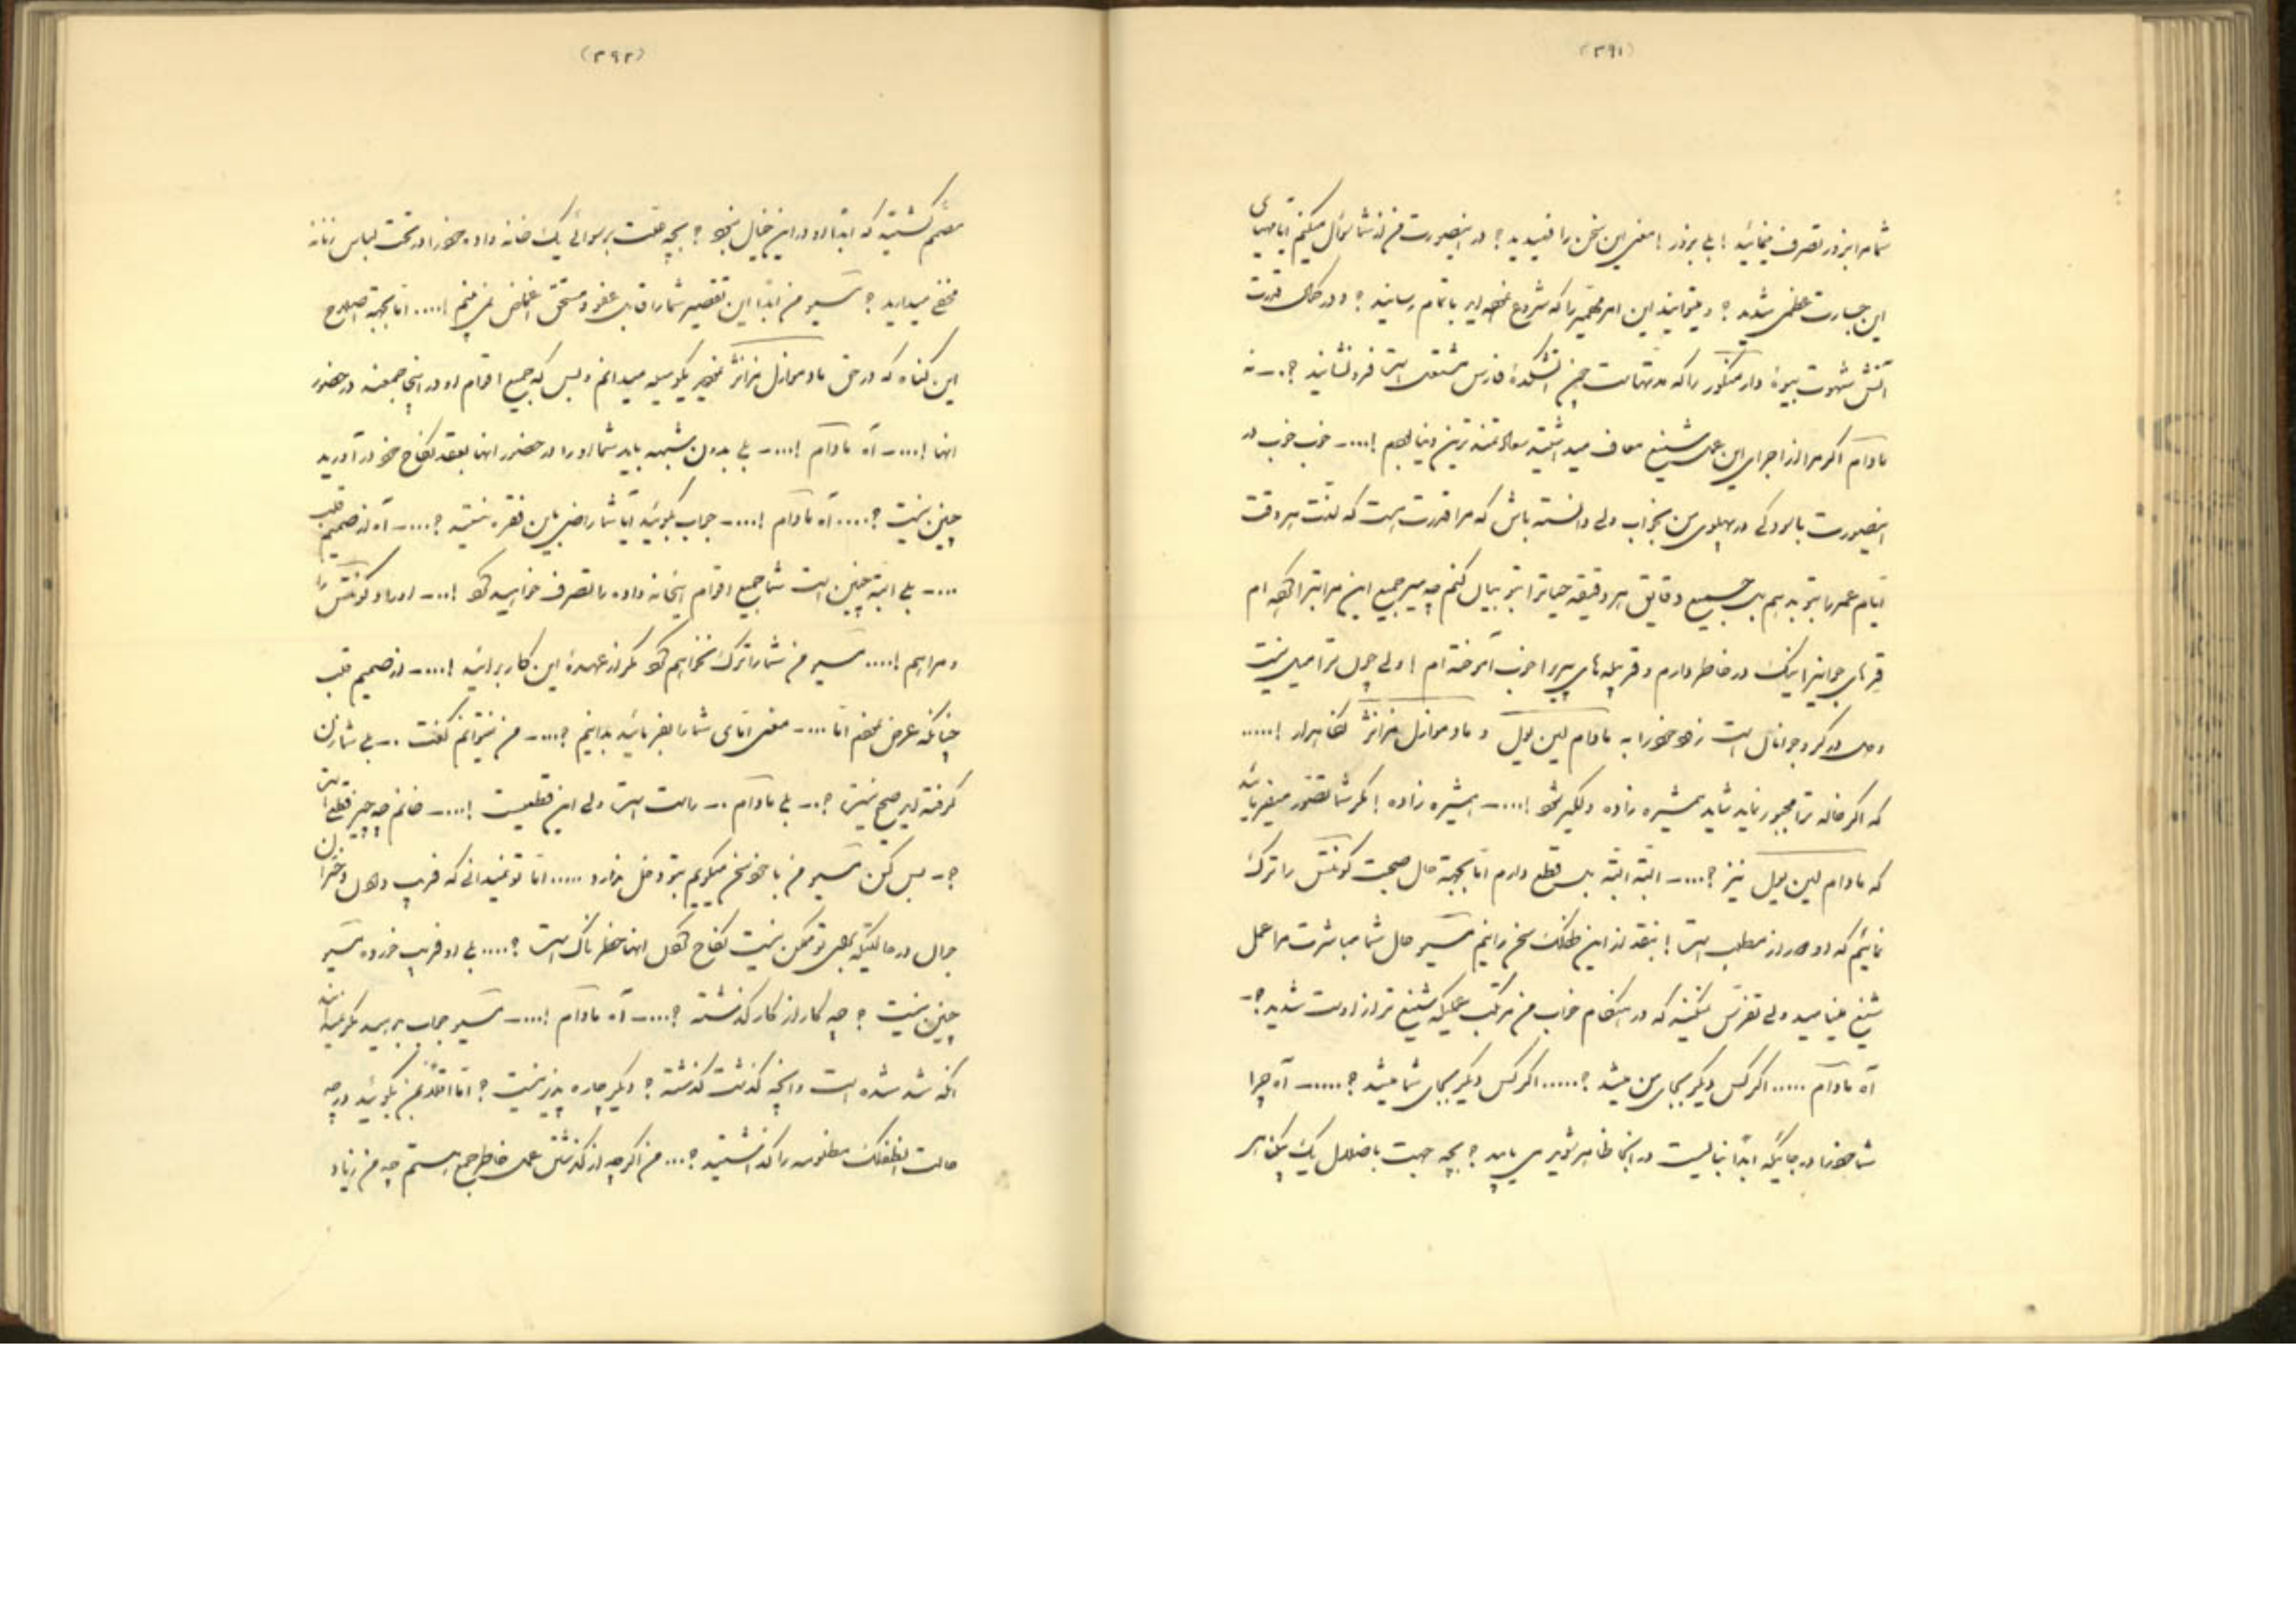 (۳۹۱)
شما مرا بزور تصرف مینمائید ! بلی بزور ! معنی این سخن را فهمیدید ؟ در اینصورت من از شما سؤال میکنم آیا مهیای
این جسارت عظمی شدید ؟ و میتوانید این امر مهمی را که شروع نموده اید باتمام رسانید ؟ و در کمال قدرت
آتش شهوت بیوهٔ را که مدتهاست چون آتشکدهٔ فارس مشتعل است فرو نشانید ؟ ـ نه
مادام اگر مرا از اجرای این عمل شنیع معاف میداشتید سعادتمند ترین دنیا بودم !....ـ خوب خوب در
اینصورت بآسودگی در پهلوی من بخواب ولی دانسته باش که مرا قدرت هست که لذت هر وقت
ایام عمر را بتو بدهم بل جمیع دقایق هر دقیقه حیاترا بتو بیان کنم چه من جمیع این مراتبرا ام
جوانیرا نیک در خاطر دارم و پیریرا خوب آموخته ام ! ولی چون ترا میلی نیست
و دلت در گرو جوانان است خودرا به مادام لین یول و مادموازل نگاهدار !.....
که اگر خاله ترا مجبور نماید شاید همشیره زاده دلگیر شود !....ـ همشیره زاده ! مگر شما تصور میفرمائید
که مادام لین یول نیز ؟....ـ البته البته بلی قطع دارم اما بجهة حال صحبت کونتس را ترک
نمائیم که او دور از مطلب است ! بنقد از این طفلک سخن رانیم مسیو حال شما مباشرت مرا عمل
شنیع مینامید ولی تصور نکنید که در هنگام خواب من مرتکب عملیکه شنیع تر از اوست شدید ؟ ـ
آه مادام ..... اگر کس دیگر بجای من میشد ؟..... اگر کس دیگر بجای شما میشد ؟.....ـ آه چرا
شما خودرا در جائیکه ابداً نبایست در آنجا ظاهر شوید می یابید ؟ بچه جهت باضلال یک بیگناهی
(۳۹۲)
مصمم گشتید که ابداً او در این خیال نبود ؟ بچه علت برسوائی یک خانه داده خودرا در تحت لباس زنانه
مخفی میدارید ؟ مسیو من ابداً این تقصیر شما را قابل عفو و مستحق اغماض نمی بینم !.... اما بجهة اصلاح
این گناه که در حق مادموازل نمودید یک وسیله میدانم و بس که جمیع اقوام او در اینجا جمعند در حضور
آنها !....ـ آه مادام !....ـ بلی بدون شبهه باید شما او را در حضور آنها بعقد نکاح خود در آورید
چنین نیست ؟.... آه مادام !....ـ جواب بگوئید آیا شما راضی باین فقره نیستید ؟....ـ آه از صمیم قلب
....ـ بلی البته چنین است شما جمیع اقوام اینخانه داده را تصرف خواهید کرد !...ـ او را و کونتس را
و مرا هم !.... مسیو من شما را ترک نخواهم کرد مگر از عهدهٔ این کار برائید !....ـ از صمیم قلب
چنانکه عرض نمودم اما ....ـ معنی امای شما را بفرمائید بدانیم ؟....ـ من نمیتوانم گفت ..ـ بلی شما زن
گرفته اید صحیح نیست ؟..ـ بلی مادام ..ـ راست است ولی این قطعیست !....ـ خانم چه چیز قطعی است
؟ ـ بس کن مسیو من با خود سخن میگویم بتو دخل ندارد ..... اما تو نمیدانی که فریب دادن دختران
جوان در حالتیکه بمثل تو ممکن نیست نکاح کردن آنها خطرناک است ؟.... بلی او فریب خورده مسیو
چنین نیست ؟ چه کار از کار گذشته ؟....ـ آه مادام !....ـ مسیو جواب بدهید مگر نمیدانید
آنکه شد شده است و آنچه گذشت گذشته ؟ دیگر چاره پذیر نیست ؟ اما اقلاً بمن بگوئید در چه
حالت آنطفلک مظلومه را گذاشتید ؟... من اگر چه از گذشتن عمل خاطر جمع هستم چه من زیاد